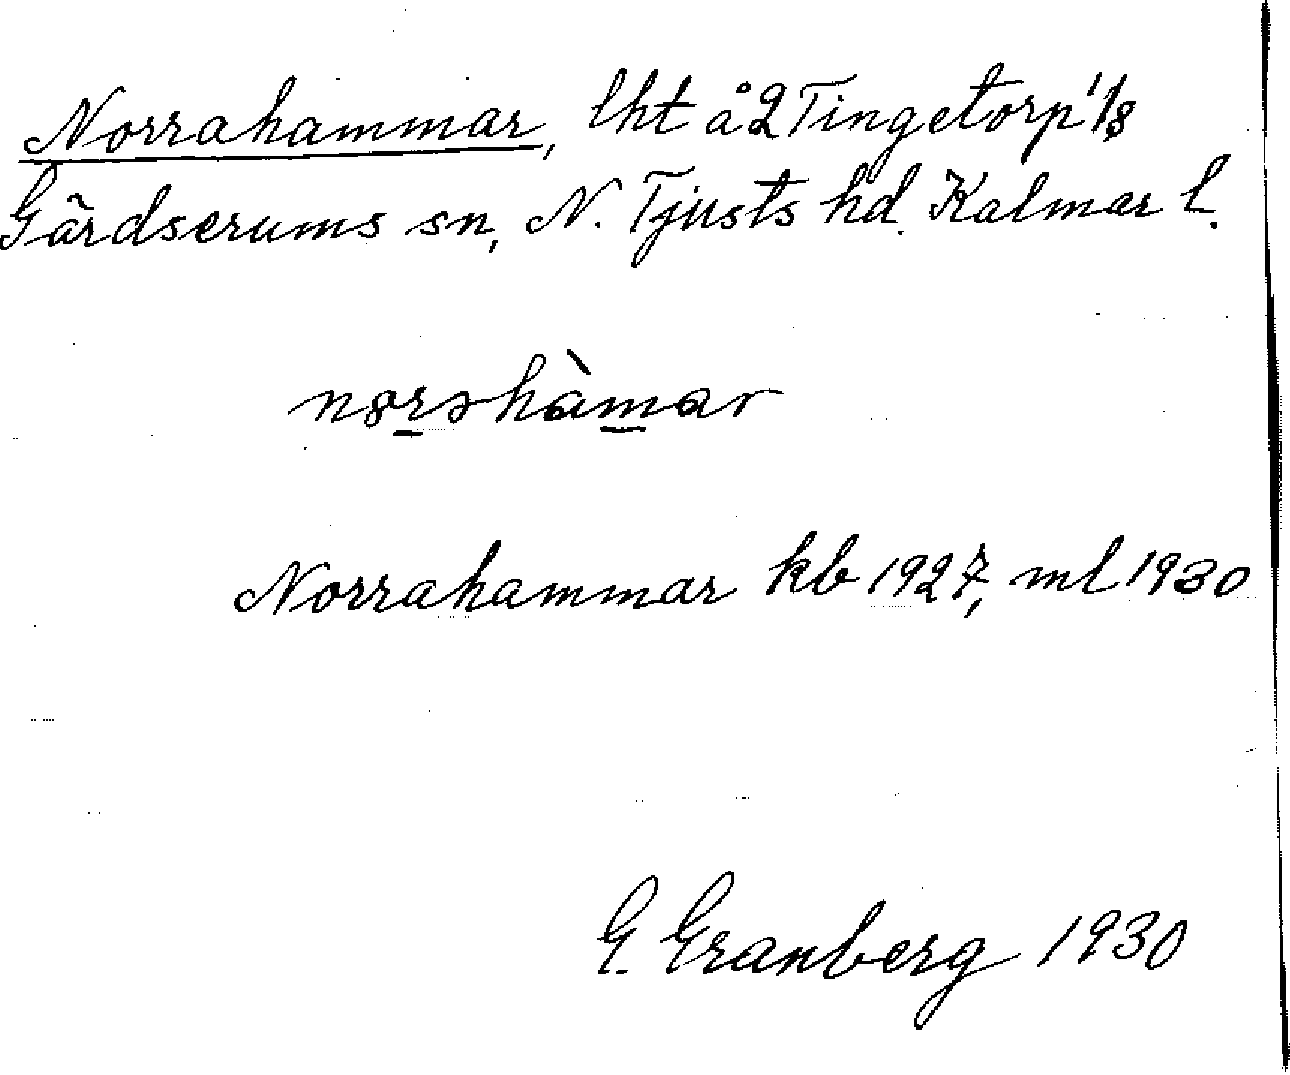 Norrahammar, lht å 2 Tingetorp 1/8
Gärdserums sn, N. Tjusts hd. Kalmar l.
nȣrəhàmar
Norrahammar kb 1927, ml 1930
G. Granberg 1930